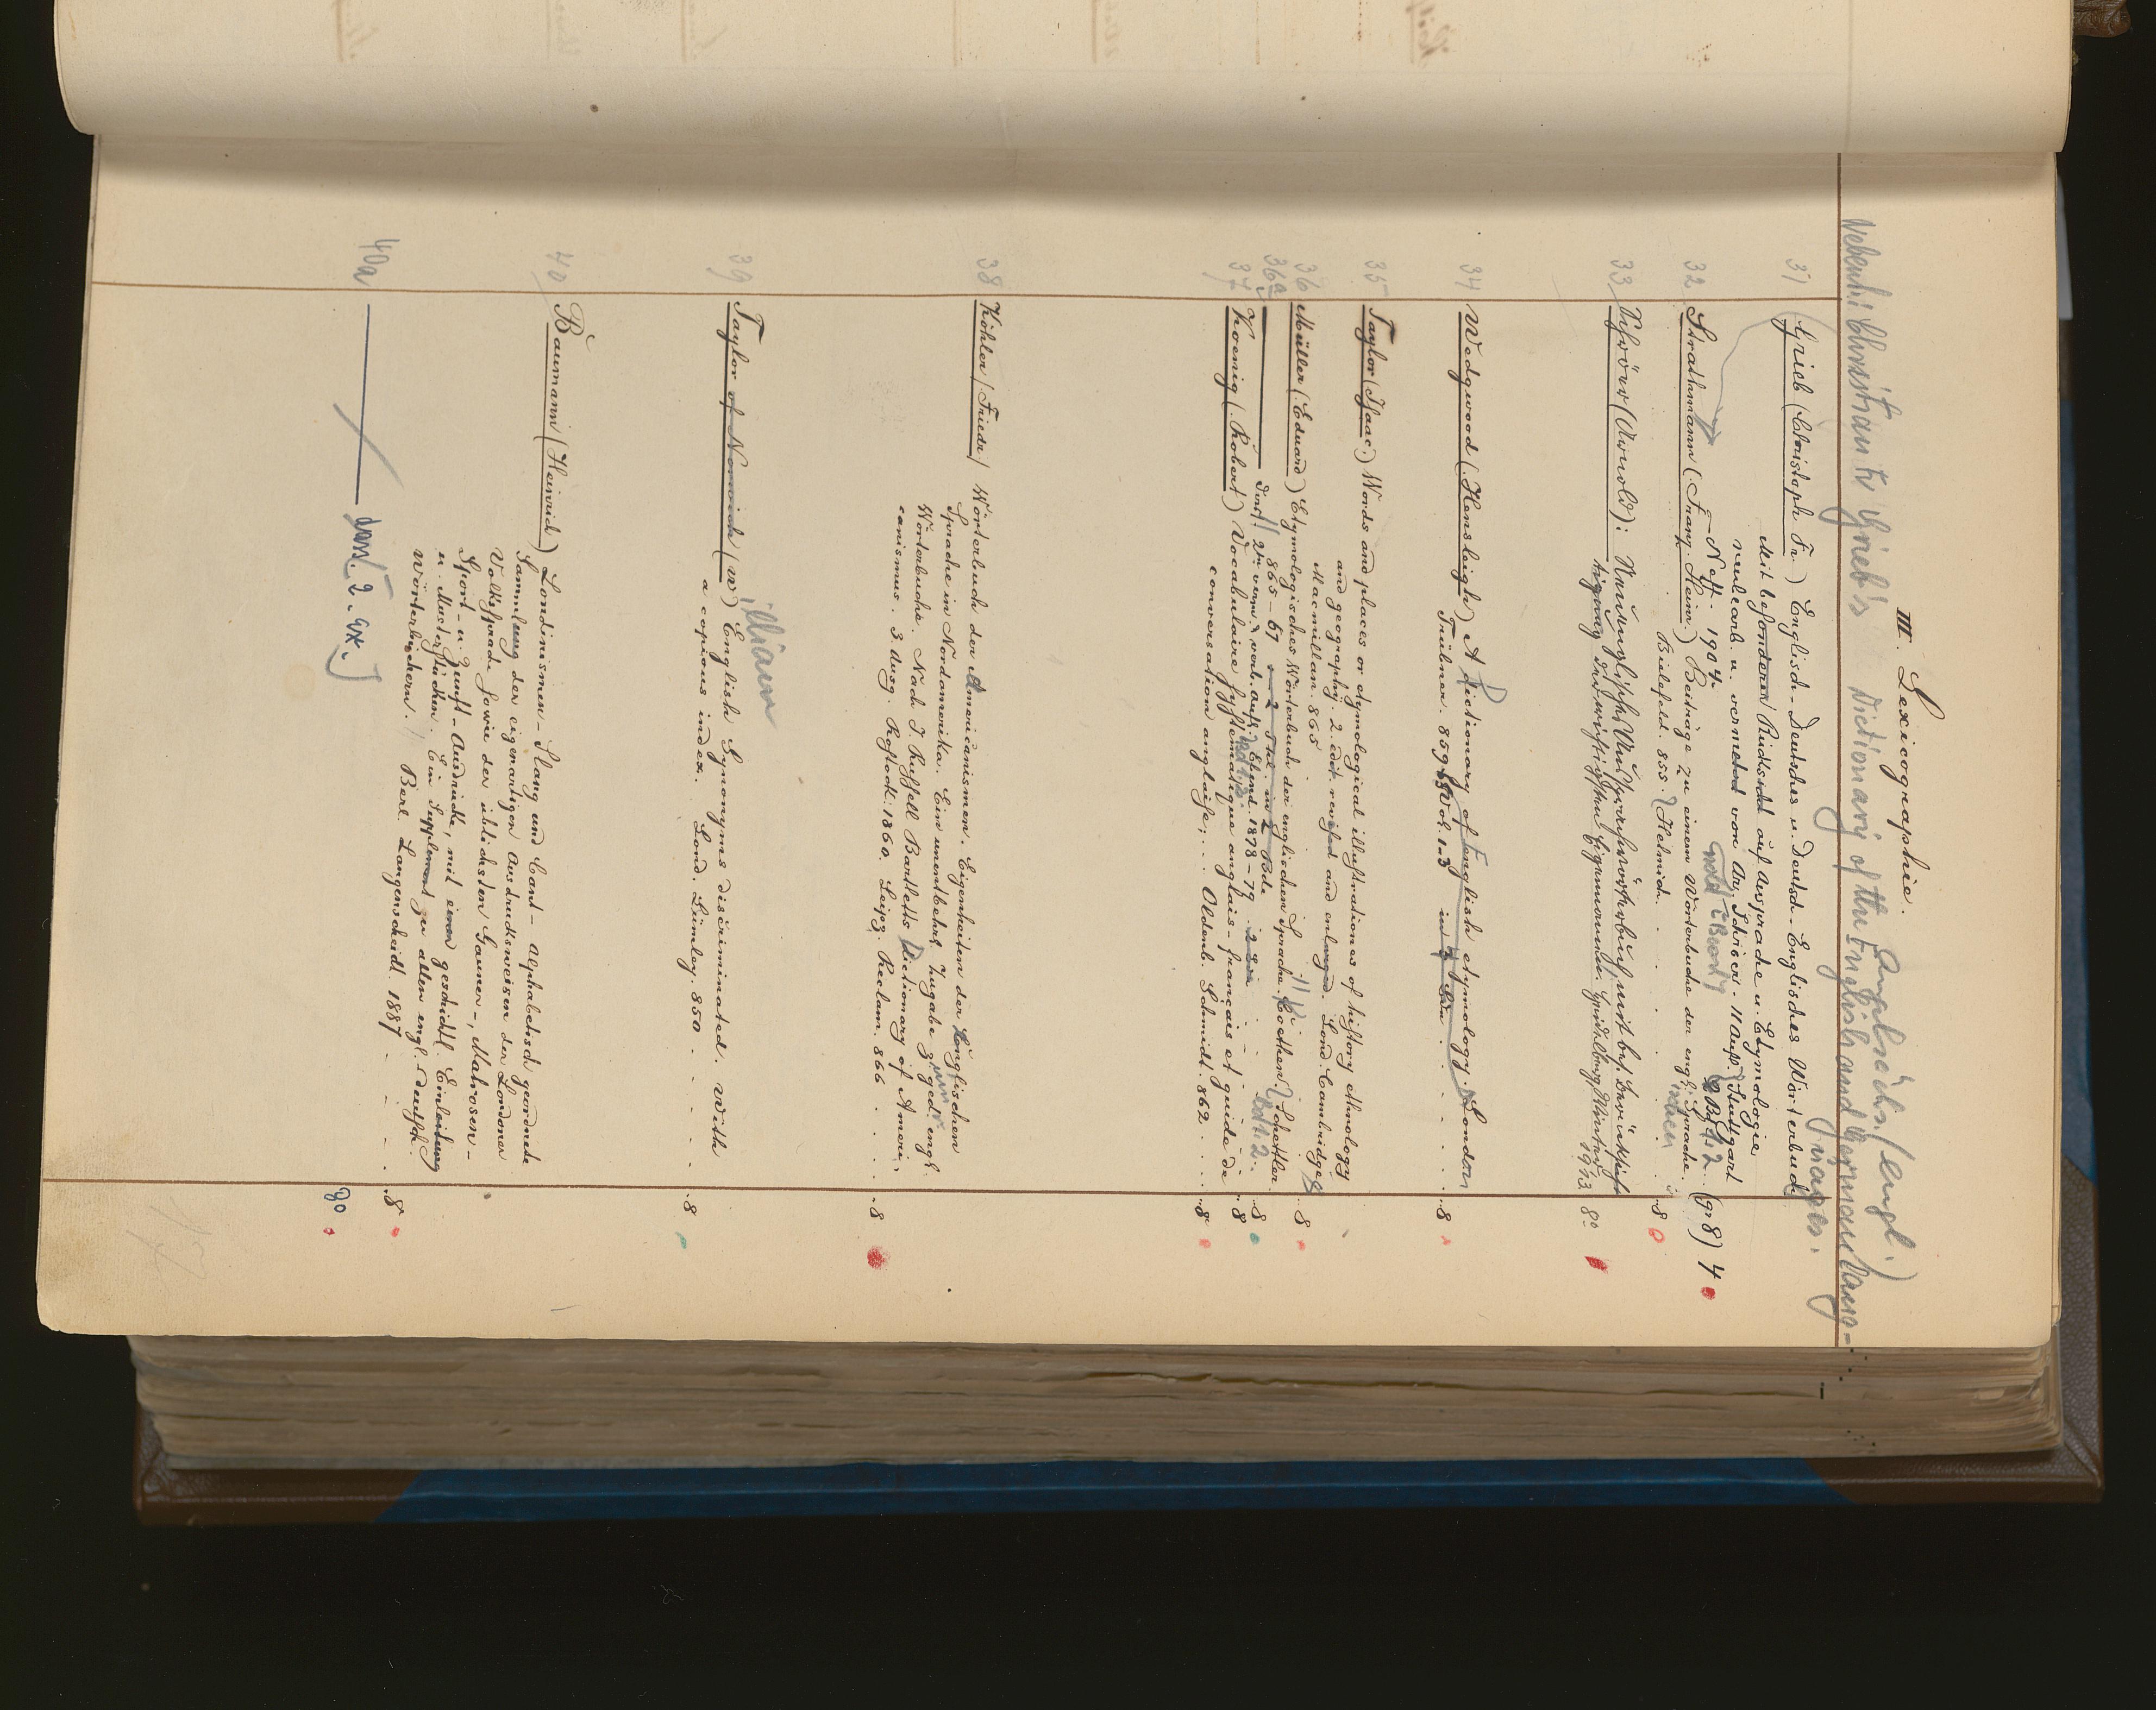 III. Lexicographie.
Angelsächs. (engl.)
Nebent.: Christian Fr. Grieb's Dictionary of the English and German lang-
uages.
31 Grieb (Christoph Fr.) Englisch-Deutsches u. Deutsch-Englisches Wörterbuch
Mit besonderer Rücksicht auf Aussprache u. Etymologie
neubearb. u. vermehrt von Arn. Schröer. 11 Aufl. Stuttgart
Neff. 1904. Bd 1. 2 (gr 8) 4
32 Strathmann (Franz Heinr.) Beiträge zu einem Wörterbuche der engl. Sprache.
Bielefeld. 855. Helmich. 8
33 Schröer (Arnold): Neuenglisches Aussprachwörterbuch mit bes. Berücksich-
tigung der wichtigsten Eigennamen. Heidelberg, Winter 1913. 8°
34 Wedgwood (Hensleigh) A Dictionary of English etymology. London
Trübner. 859-65 Vol. 1-3 8
35 Taylor (Isaac) Words and places or etymological illustrations of history ethnology
and geography. 2. edit. revised and enlarged. Lond. Cambridge
Macmillan. 865 8
36 Müller (Eduard) Etymologisches Wörterbuch der englischen Sprache. Coethen. Schettler
865-67 2 Thle in 2 Bde Bd 1. 2. 8
36a dass. 2te verm. u. verb. Aufl. Ebend. 1878-79 8
37 Koenig (Robert) Vocabulaire systématique anglais-français et guide de
conversation anglaise; Oldenb. Schmidt. 862 8
38 Köhler (Friedr.) Wörterbuch der Americanismen. Eigenheiten der Englischen
Sprache in Nordamerika. Ein unentbehrl. Zugabe z. jed. engl.
Wörterbuche. Nach J. Russell Bartletts Dictionary of Ameri-
canismus. 3. Ausg. Rostock. 1860. Leipz. Reclam. 866 8
39 Taylor of Norwich (William) English Synonyms discriminated. With
a copious index. Lond. Lümley. 850 8
40 Baumann (Heinrich) Londinismen-Slang und Cant- Alphabetisch geordnete
Sammlung der eigenartigen Ausdrucksweisen der Londoner
Volkssprache sowie der üblichsten Gauner-, Matrosen-
Sport- u. Zunft-Ausdrücke, mit einer geschichtl. Einleitung
u. Musterstücken. Ein Supplement zu allen engl.-deutsch.
Wörterbüchern. Berl. Langenscheidt 1887 8
40a dass. 2. Ex. 8°